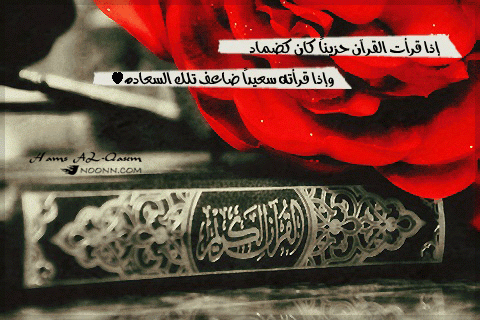 إذا قرأت القرآن حزيناً كان كضماد
وإذا قرأته سعيداً ضاعف تلك السعاده
Hams AL-Qasem
NOONN.COM
القرآن الكريم